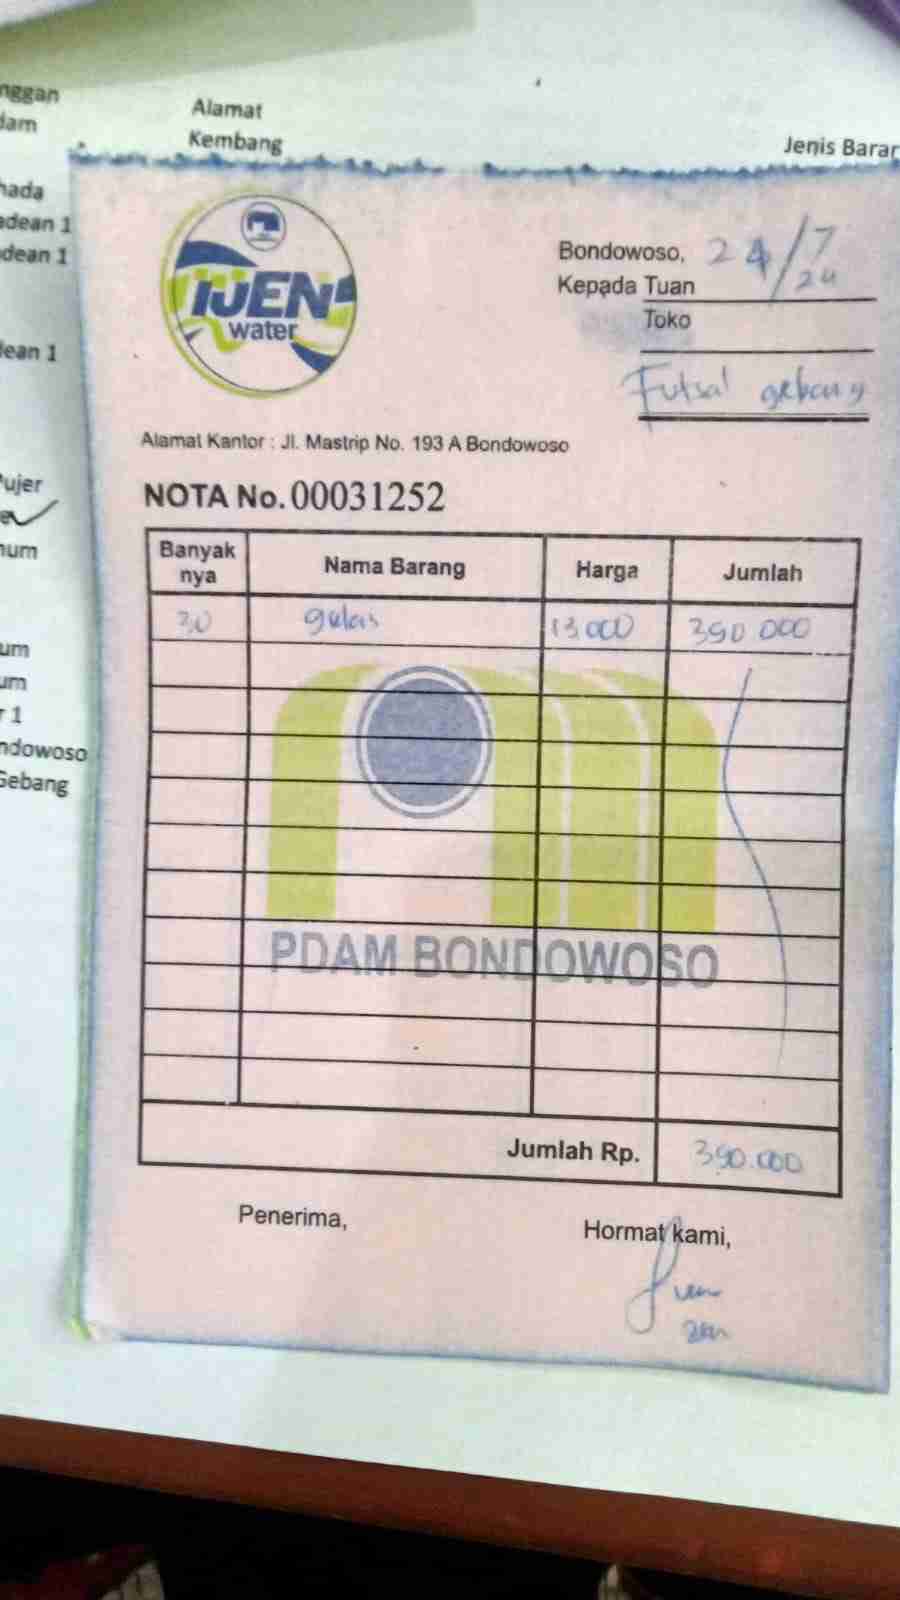 nggan
dam
Alamat
Kembang
Jenis Barar
hada
adean 1
dean 1
dean 1
Pujer
num
um
um
r 1
ndowoso
Gebang
IJEN
water
Bondowoso, 24/7
24
Kepada Tuan
Toko
Futsal gebang
Alamat Kantor : Jl. Mastrip No. 193 A Bondowoso
NOTA No. 00031252
Banyak nya Nama Barang Harga Jumlah
30 gelas 13000 390 000
PDAM BONDOWOSO
Jumlah Rp. 390.000
Penerima,
Hormat kami,